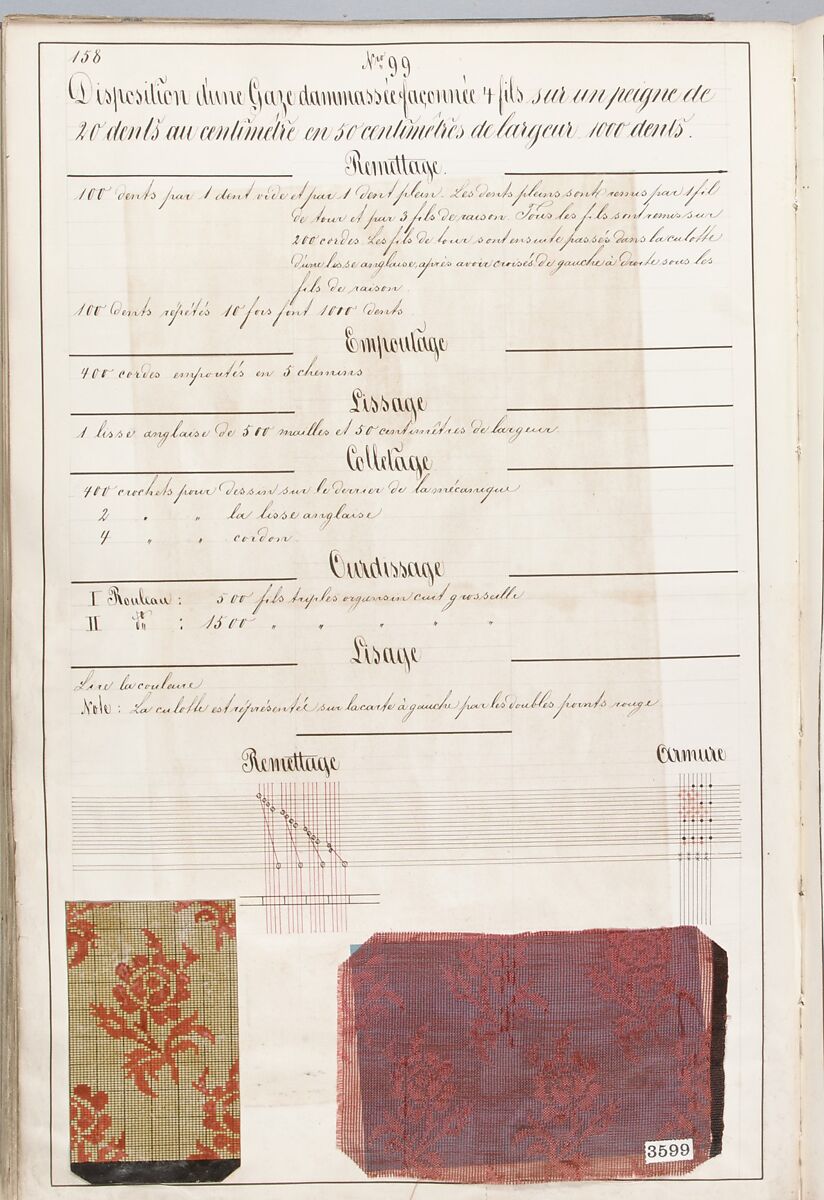 158
Nro 99
Disposition d'une Gaze dammassée façonnée 4 fils sur un peigne de
20 dents au centimétre en 50 centimétres de largeur 1000 dents.
Remettage.
100 dents par 1 dent vide et par 1 dent plein. Les dents pleins sont remis par 1 fil
de tour et par 3 fils de raison. Tous les fils sont remis sur
200 cordes. Les fils de tour sont ensuite passés dans la culotte
d'une lisse anglaise, après avoir croisés de gauche à droite sous les
fils de raison.
100 dents répétés 10 fois font 1000 dents.
Empoutage
400 cordes empoutés en 5 chemins
Lissage
1 lisse anglaise de 500 mailles et 50 centimêtres de largeur
Colletage
400 crochets pour dessin sur le derrier de la mécanique
2 " " la lisse anglaise
4 " " cordon
Ourdissage
I Rouleau : 500 fils triples organsin cuit groseille
II do : 1500 " " " " "
Lisage
Lire la couleure
Note : La culotte est répréséntée sur la carte à gauche par les doubles points rouge
Remettage
Armure
3599